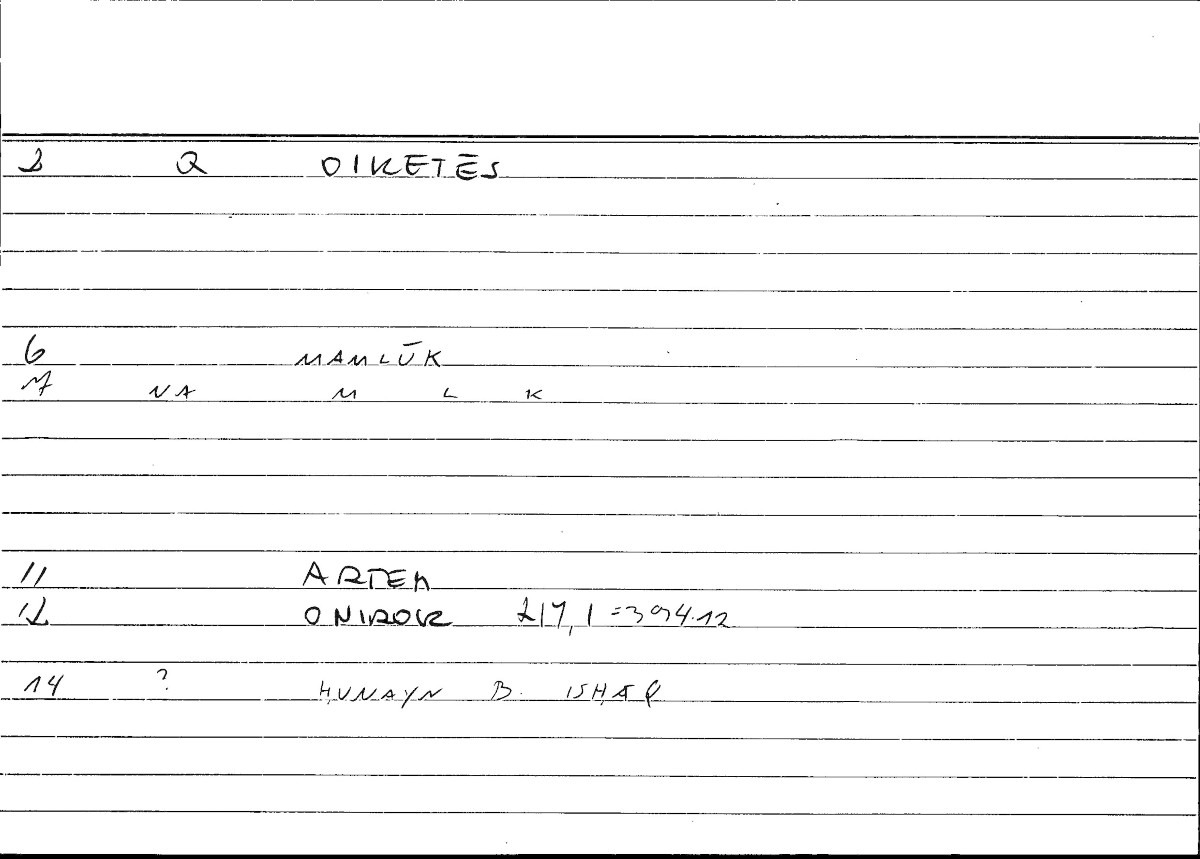 2 Q OIKETĒS
6 MAMLŪK
7 NA M L K
11 ARTEM
12 ONIROK 217,1 =394.12
14 ? ḤUNAYN B. ISḤĀQ